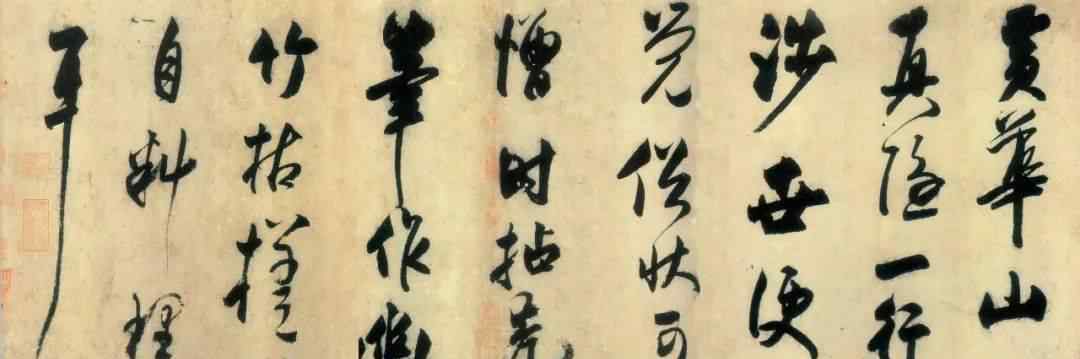 黄華山
真隱一行
涉世便
覺俗狀可
憎時拈秃
筆作幽
竹枯槎
自料理
耳